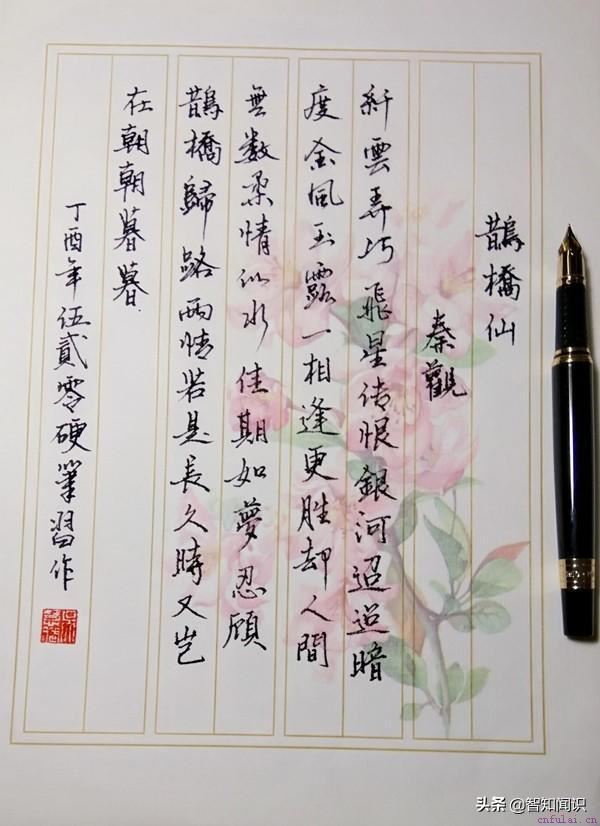 鵲橋仙
秦觀
纤雲弄巧飛星传恨銀河迢迢暗
度金風玉露一相逢更胜却人間
無数柔情似水佳期如夢忍顧
鵲橋歸路兩情若是長久時又岂
在朝朝暮暮
丁酉年伍貳零硬筆習作
头条 @智知闻识
cnfulai.cn